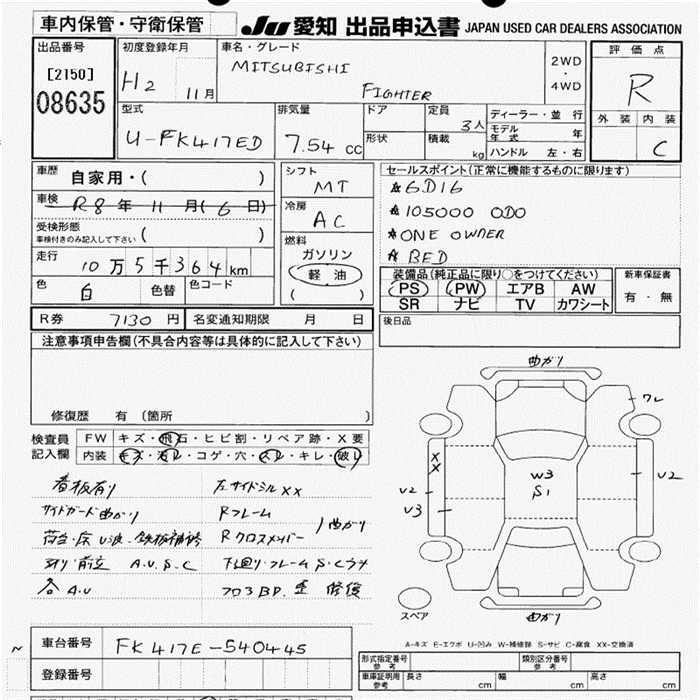 車内保管・守衛保管
JU 愛知 出品申込書 JAPAN USED CAR DEALERS ASSOCIATION
出品番号
[2150]
08635
初度登録年月
H2 11月
車名・グレード
MITSUBISHI
FIGHTER
2WD
・
4WD
評価点
R
外装 内装
C
型式
U-FK417ED
排気量
7.54 cc
ドア
形状
定員
3人
積載
kg
ディーラー・並行
モデル年式 年
ハンドル 左・右
車歴
自家用・( )
車検
R8年11月(6日)
受検形態
車検付きのみ記入して下さい ( )
走行
10万5千364km
色
白
色替
色コード
シフト
MT
冷房
AC
燃料
ガソリン
軽油
( )
セールスポイント(正常に機能するものに限ります)
☆6D16
☆105000 ODO
☆ONE OWNER
☆BED
装備品(純正品に限り○をつけてください)
PS PW エアB AW
SR ナビ TV カワシート
新車保証書
有・無
R券 7130円
名変通知期限 月 日
後日品
注意事項申告欄(不具合内容等は具体的に記入して下さい)
修復歴 有(箇所 )
検査員
記入欄
FW キズ・飛石・ヒビ割・リペア跡・X要
内装 キズ・汚レ・コゲ・穴・スレ・キレ・破レ
看板有り
サイドガード曲がり
荷台・床U波・鉄板補修
前立 A.U.S.C
A.U
左サイドシルXX
Rフレーム
Rクロスメンバー
曲がり
下廻り・フレームS.C
フロア3BD. 歪 修復
曲がり
ワレ
XX
W3
S1
U2
U3
U2
曲がり
スペア
A-キズ E-エクボ U-凹み W-補修跡 S-サビ C-腐食 XX-交換済
車台番号
FK417E-540445
登録番号
形式指定番号
参考
類別区分番号
参考
車庫証明用
参考
長さ cm
幅 cm
高さ cm